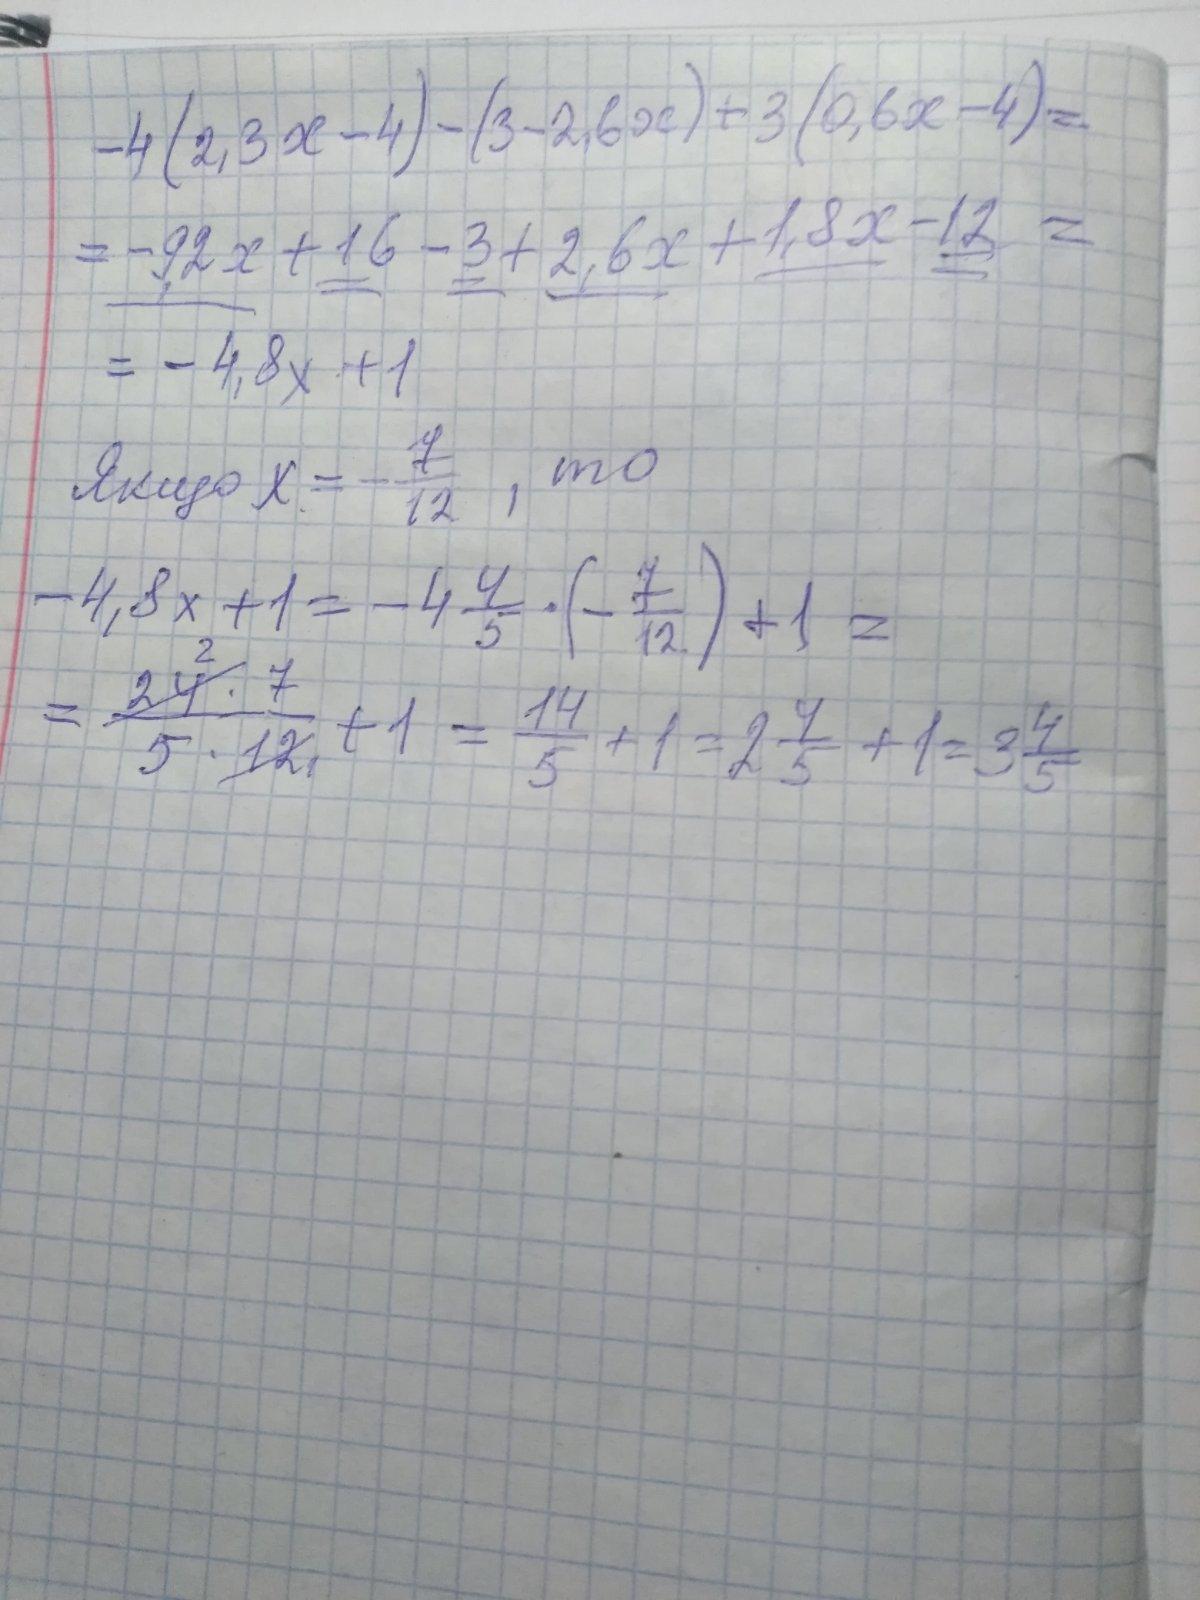 -4(2,3x-4)-(3-2,6x)+3(0,6x-4)=
=-9,2x+16-3+2,6x+1,8x-12=
=-4,8x+1
Якщо x=-7/12, то
-4,8x+1=-4 4/5·(-7/12)+1=
=24·7/5·12+1=14/5+1=2 4/5+1=3 4/5